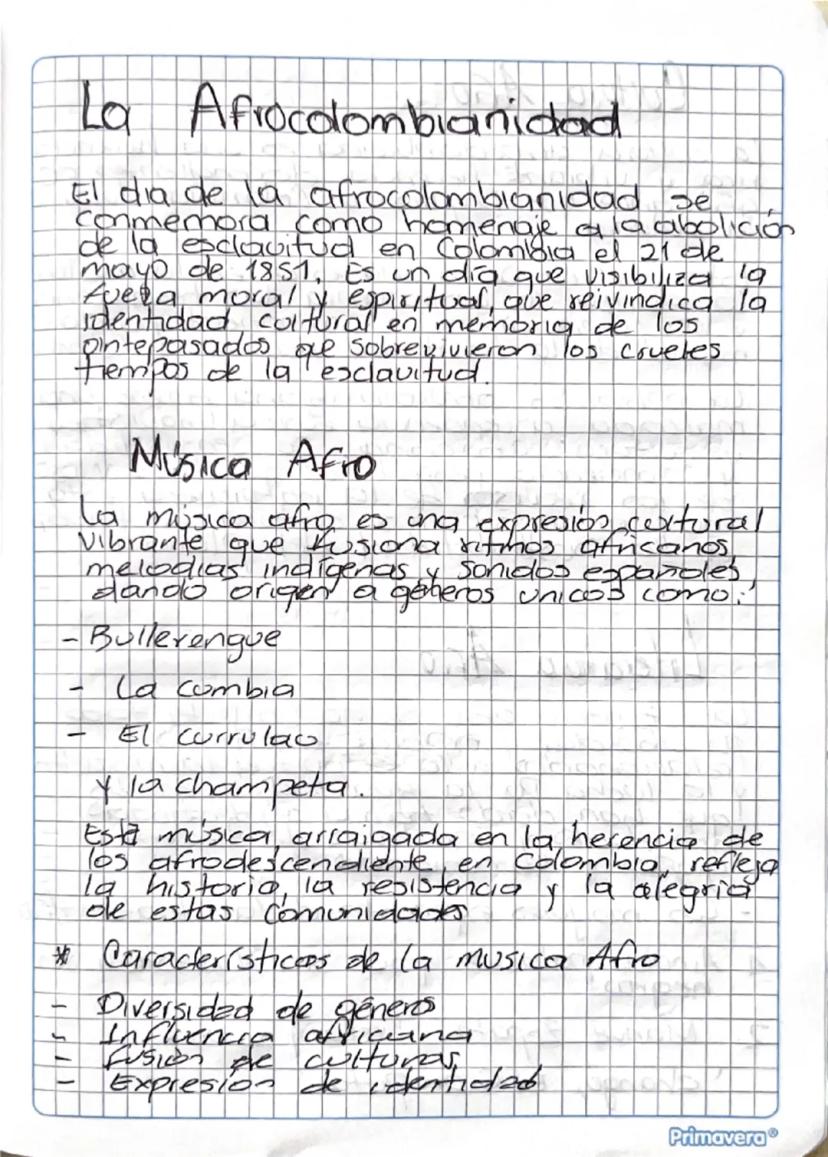 La Afrocolombianidad
El dia de la afrocolombianidad se
conmemora como homenaje a la abolición
de la esclavitud en Colombia el 21 de
mayo de 1851. Es un día que visibiliza la
fueza moral y espiritual, que reivindica la
identidad cultural en memoria de los
antepasados que sobrevivieron los crueles
tiempos de la esclavitud.
Música Afro
La música afro es una expresión cultural
vibrante que fusiona ritmos africanos,
melodías indígenas y sonidos españoles,
dando origen a géneros unicos como:
- Bullerengue
- La cumbia
- El currulao
y la champeta.
Esta música, arraigada en la herencia de
los afrodescendiente en Colombia, refleja
la historia, la resistencia y la alegria
de estas comunidades
* Características de la musica Afro
- Diversidad de géneros
- Influencia africana
- fusión de culturas
- Expresión de identidad
Primavera®